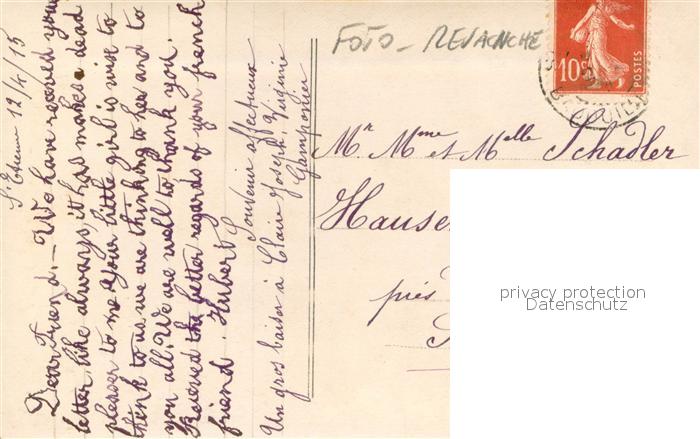 St Etienne 12/4/15
Dear Friend. — We have received your
letter like always, it has makes a dead
pleaser to me. Your little girl is wist to
think to us we are thinking to her and to
you all. We are well to thank you.
Recieved the better regards of your french
friend. Hubert
Souvenir affectueux
Un gros baiser à Claire Joseph, Virginie
Gamponier
FOTO - REVANCHE
10c
POSTES
Mr Mme et Melle Schadler
Hausen
près
privacy protection
Datenschutz